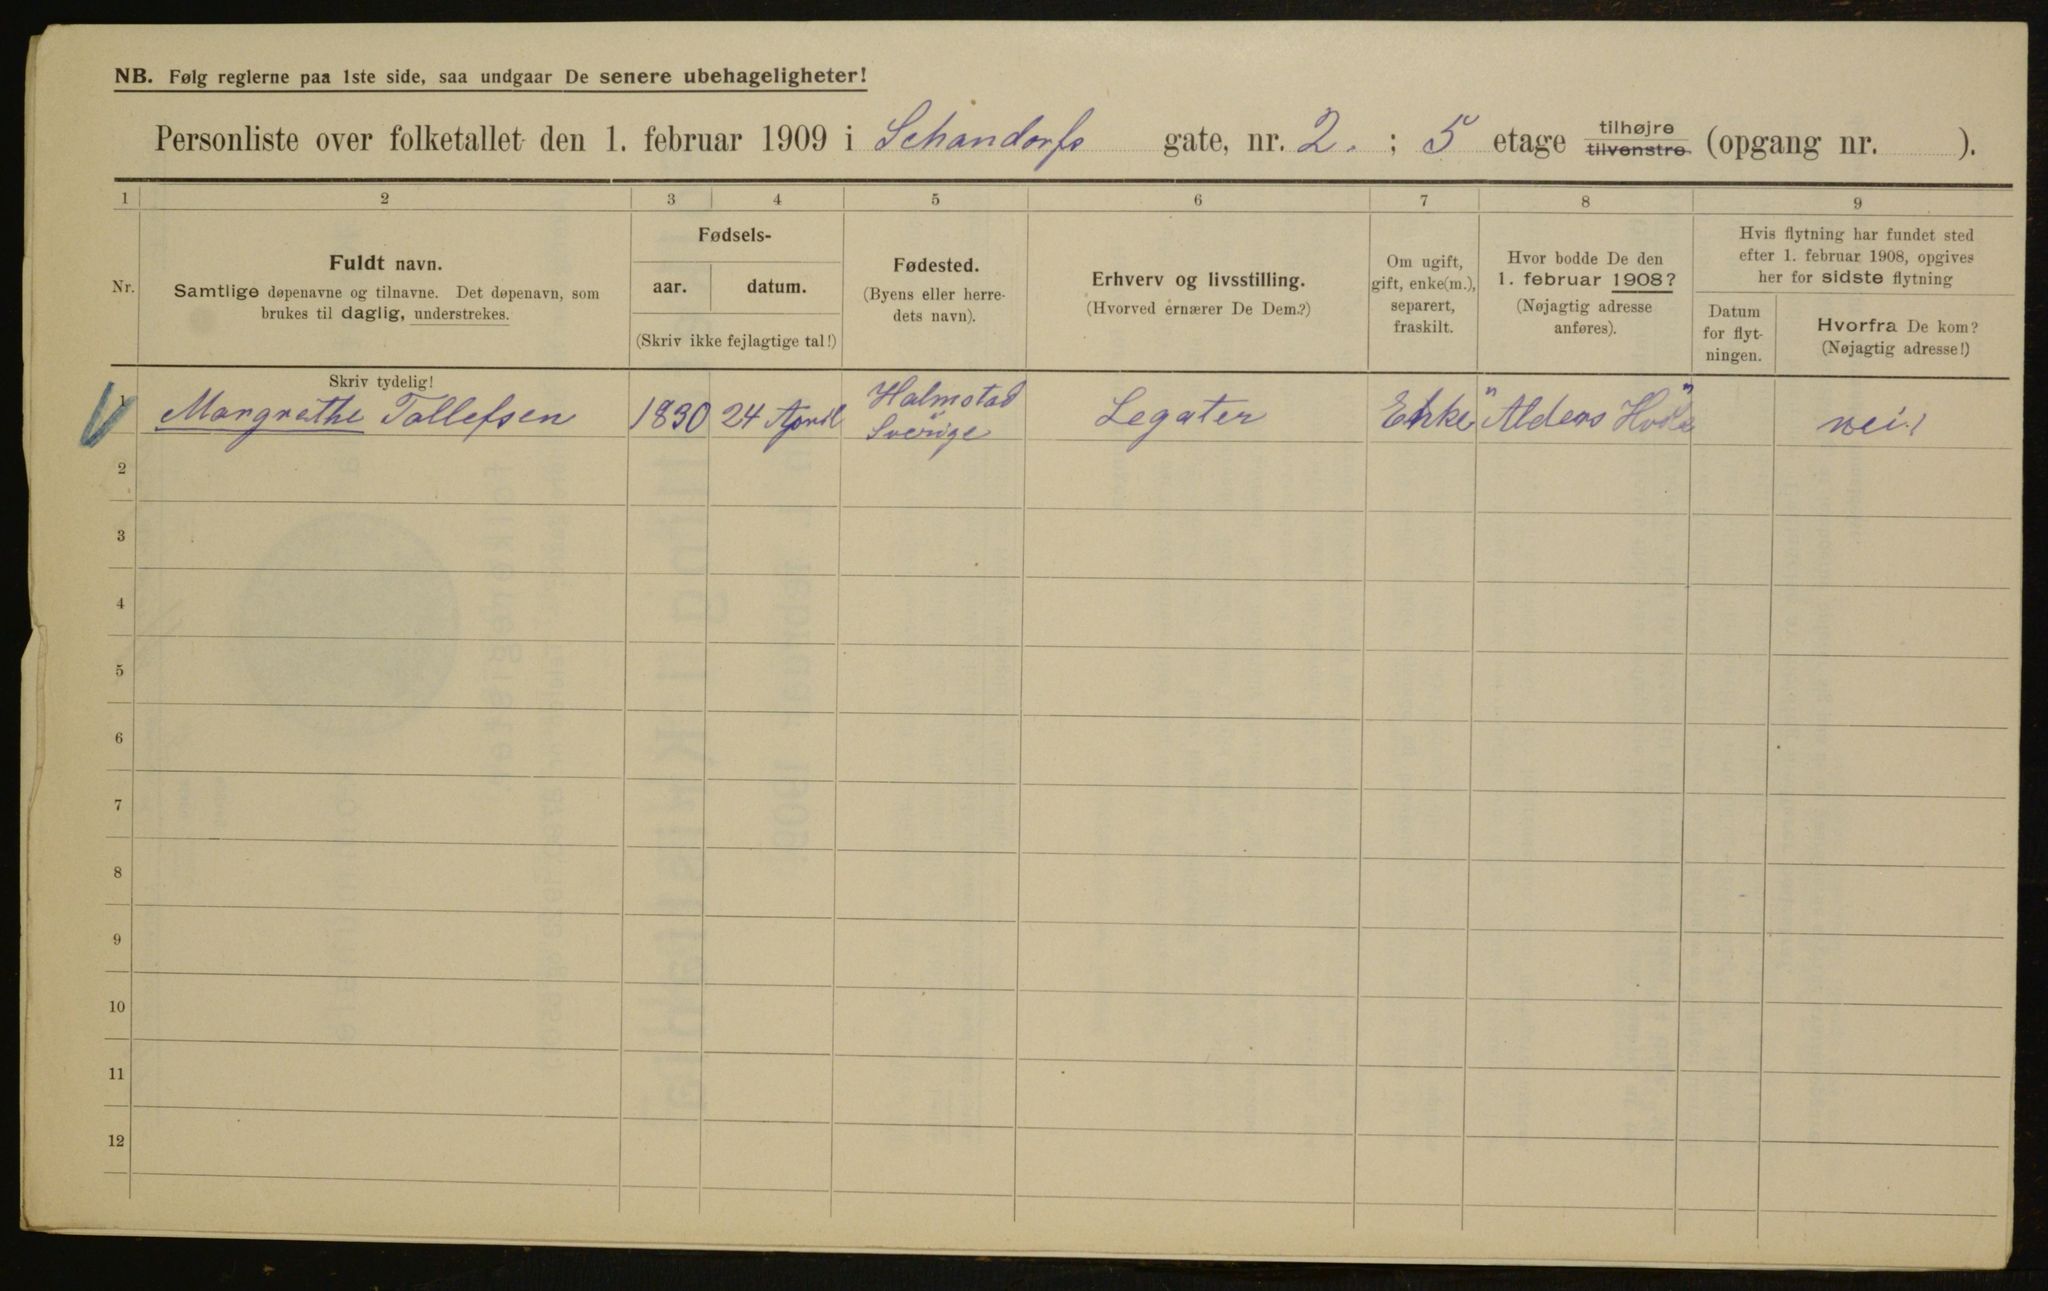 NB. Følg reglerne paa 1ste side, saa undgaar De senere ubehageligheter!
Personliste over folketallet den 1. februar 1909 i Schandorfs gate, nr. 2. ; 5 etage tilhøjre tilvenstre (opgang nr. ).
1 2 3 4 5 6 7 8 9
Nr.
Fuldt navn.
Samtlige døpenavne og tilnavne. Det døpenavn, som
brukes til daglig, understrekes.
Skriv tydelig!
Fødsels-
aar. datum.
(Skriv ikke fejlagtige tal!)
Fødested.
(Byens eller herre-
dets navn).
Erhverv og livsstilling.
(Hvorved ernærer De Dem?)
Om ugift,
gift, enke(m.),
separert,
fraskilt.
Hvor bodde De den
1. februar 1908?
(Nøjagtig adresse
anføres).
Hvis flytning har fundet sted
efter 1. februar 1908, opgives
her for sidste flytning
Datum
for flyt-
ningen.
Hvorfra De kom?
(Nøjagtig adresse!)
1 Margrethe Tollefsen 1830 24 April Halmstad
Sverige
Legater Enke "Alders Hvile" nei!
2
3
4
5
6
7
8
9
10
11
12